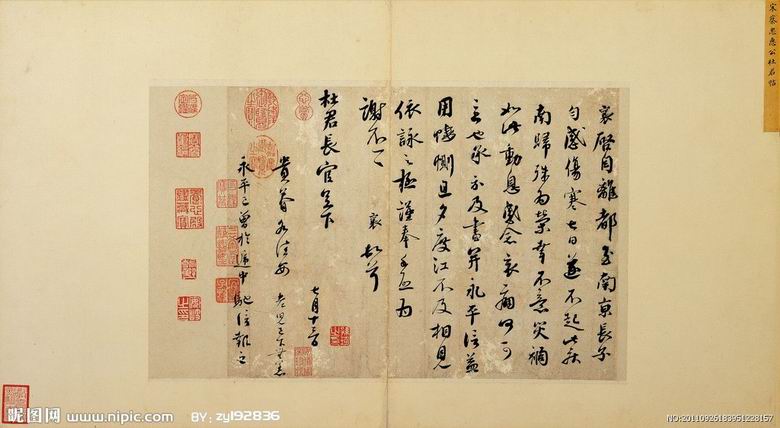 宋蔡忠惠公杜君帖
襄啓自離都至南京長子
勻感傷寒七日遂不起此疾
南歸殊為榮幸不意災禍
如此動息感念哀痛何可
言也承示及書并永平信益
用悽惻旦夕度江不及相見
依詠之極謹奉手啓為
謝不一一 襄頓首
杜君長官足下
七月十三日
貴眷各佳安 老兒已下無恙
永平已曾於遞中馳信報之
昵图网 www.nipic.com BY:zyl92836
NO:20110926183951228157